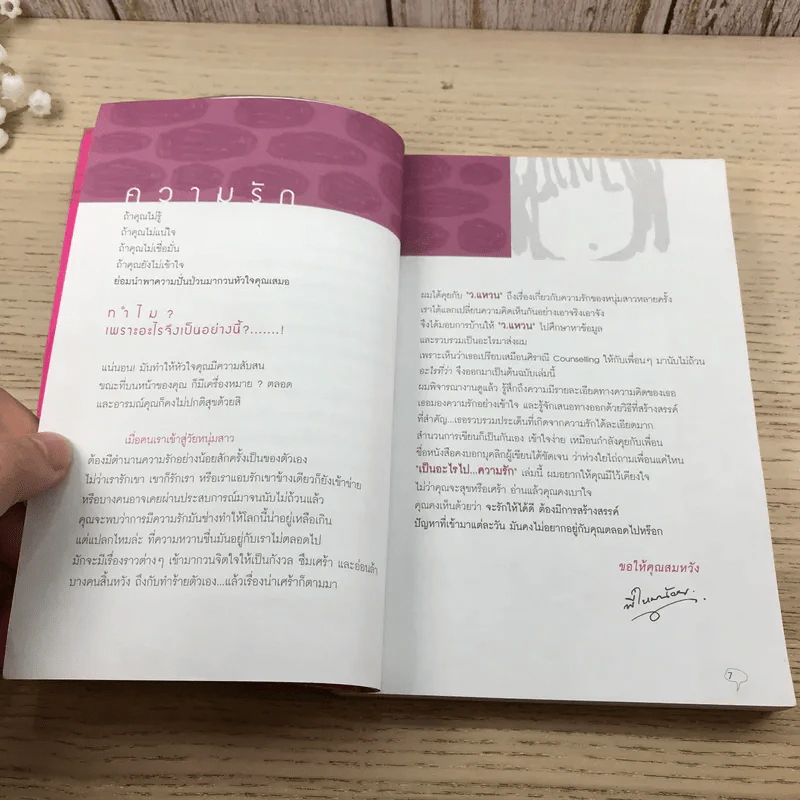 ความรัก
ถ้าคุณไม่รู้
ถ้าคุณไม่แน่ใจ
ถ้าคุณไม่เชื่อมั่น
ถ้าคุณยังไม่เข้าใจ
ย่อมนำพาความปั่นป่วนมากวนหัวใจคุณเสมอ
ทำไม?
เพราะอะไรจึงเป็นอย่างนี้?.......!
แน่นอน! มันทำให้หัวใจคุณมีความสับสน
ขณะที่บนหน้าของคุณ ก็มีเครื่องหมาย ? ตลอด
และอารมณ์คุณก็คงไม่ปกติสุขด้วยสิ
เมื่อคนเราเข้าสู่วัยหนุ่มสาว
ต้องมีตำนานความรักอย่างน้อยสักครั้งเป็นของตัวเอง
ไม่ว่าเรารักเขา เขาก็รักเรา หรือเราแอบรักเขาข้างเดียวก็ยังเข้าข่าย
หรือบางคนอาจเคยผ่านประสบการณ์มาจนนับไม่ถ้วนแล้ว
คุณจะพบว่าการมีความรักมันช่างทำให้โลกนี้น่าอยู่เหลือเกิน
แต่แปลกไหมล่ะ ที่ความหวานชื่นมันอยู่กับเราไม่ตลอดไป
มักจะมีเรื่องราวต่างๆ เข้ามากวนจิตใจให้เป็นกังวล ซึมเศร้า และอ่อนล้า
บางคนสิ้นหวัง ถึงกับทำร้ายตัวเอง...แล้วเรื่องน่าเศร้าก็ตามมา
ผมได้คุยกับ "ว.แหวน" ถึงเรื่องเกี่ยวกับความรักของหนุ่มสาวหลายครั้ง
เราได้แลกเปลี่ยนความคิดเห็นกันอย่างเอาจริงเอาจัง
จึงได้มอบการบ้านให้ "ว.แหวน" ไปศึกษาหาข้อมูล
และรวบรวมเป็นอะไรมาส่งผม
เพราะเห็นว่าเธอเปรียบเสมือนศิราณี Counselling ให้กับเพื่อนๆ มานับไม่ถ้วน
อะไรที่ว่า จึงออกมาเป็นต้นฉบับเล่มนี้
ผมพิจารณางานดูแล้ว รู้สึกถึงความมีรายละเอียดทางความคิดของเธอ
เธอมองความรักอย่างเข้าใจ และรู้จักเสนอทางออกด้วยวิธีที่สร้างสรรค์
ที่สำคัญ...เธอรวบรวมประเด็นที่เกิดจากความรักได้ละเอียดมาก
สำนวนการเขียนก็เป็นกันเอง เข้าใจง่าย เหมือนกำลังคุยกับเพื่อน
ชื่อหนังสือคงบอกบุคลิกผู้เขียนได้ชัดเจน ว่าห่วงใยไถ่ถามเพื่อนแค่ไหน
"เป็นอะไรไป...ความรัก" เล่มนี้ ผมอยากให้คุณมีไว้เคียงใจ
ไม่ว่าคุณจะสุขหรือเศร้า อ่านแล้วคุณคงเบาใจ
คุณคงเห็นด้วยว่า จะรักให้ได้ดี ต้องมีการสร้างสรรค์
ปัญหาที่เข้ามาแต่ละวัน มันคงไม่อยากอยู่กับคุณตลอดไปหรือก
ขอให้คุณสมหวัง
7